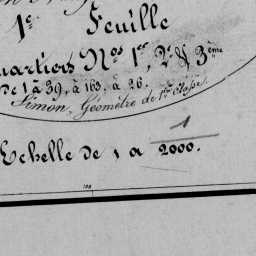 1e Feuille
Quartiers Nos 1er, 2e & 3ème
De 1 à 39, à 163, à 26.
Simon, Géomètre de 1ère Classe.
Echelle de 1 à 1/2000.
100